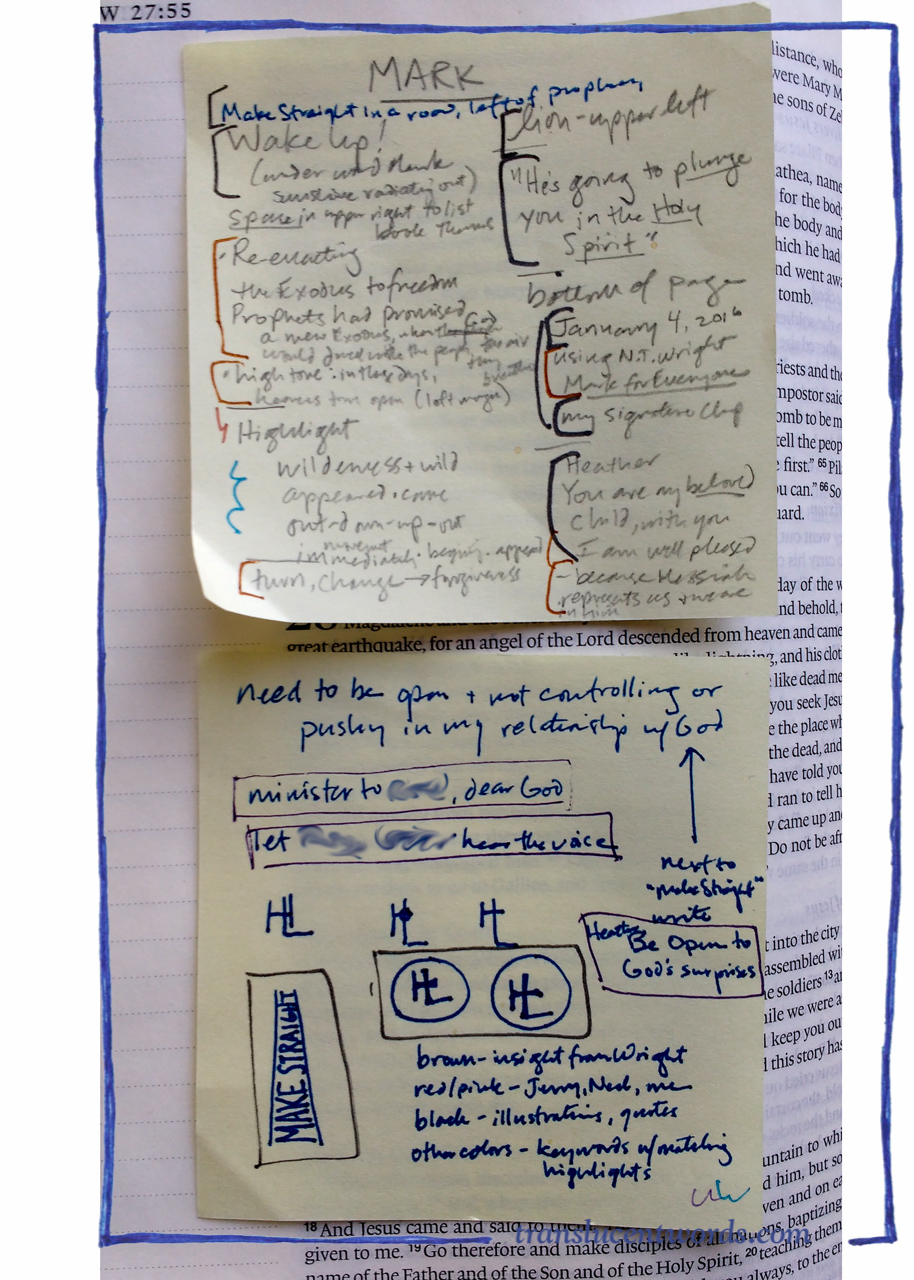 W 27:55
MARK
Make Straight in a road, left of prophecy
Wake up!
(under word Mark
sunshine radiating out)
Space in upper right to list
book themes
lion - upper left
"He's going to plunge
you in the Holy
Spirit"
· Re-enacting
the Exodus to freedom
Prophets had promised
a new Exodus, when God
would dwell with the people
· high tone: in those days,
heavens torn open (left margin)
Highlight
wilderness + wild
appeared · came
out - down - up - out
movement
immediately · begin · appeared
turn, change → forgiveness
bottom of page
January 4, 2016
using N.T. Wright
Mark for Everyone
my signature chop
Heather
You are my beloved
child, with you
I am well pleased
- because Messiah
represents us + we are
in him
distance, who
were Mary M
he sons of Ze
athea, name
for the body
he body and
which he had
nd went awa
tomb.
riests and the
mpostor said
omb to be m
tell the peop
first." 65 Pil
u can." 66 So
uard.
day of the w
nd behold,
great earthquake, for an angel of the Lord descended from heaven and came
lightning, and his clot
like dead me
you seek Jesu
e the place wh
the dead, and
have told you
d ran to tell h
y came up and
Do not be afr
need to be open + not controlling or
pushy in my relationship w/ God
minister to , dear God
let hear the voice
next to
"make straight"
write
Heather
Be Open to
God's surprises
HL HL HL
HL HL
MAKE STRAIGHT
brown - insight from Wright
red/pink - Jerry, Ned, me
black - illustrations, quotes
other colors - keywords w/ matching
highlights
t into the city
assembled wi
e soldiers 13 a
while we were a
l keep you ou
l this story has
untain to whi
d him, but so
ven and on ea
18 And Jesus came and said to them,
given to me. 19 Go therefore and make disciples of all nations, baptizing
name of the Father and of the Son and of the Holy Spirit, 20 teaching them
always, to the en
translucentwords.com